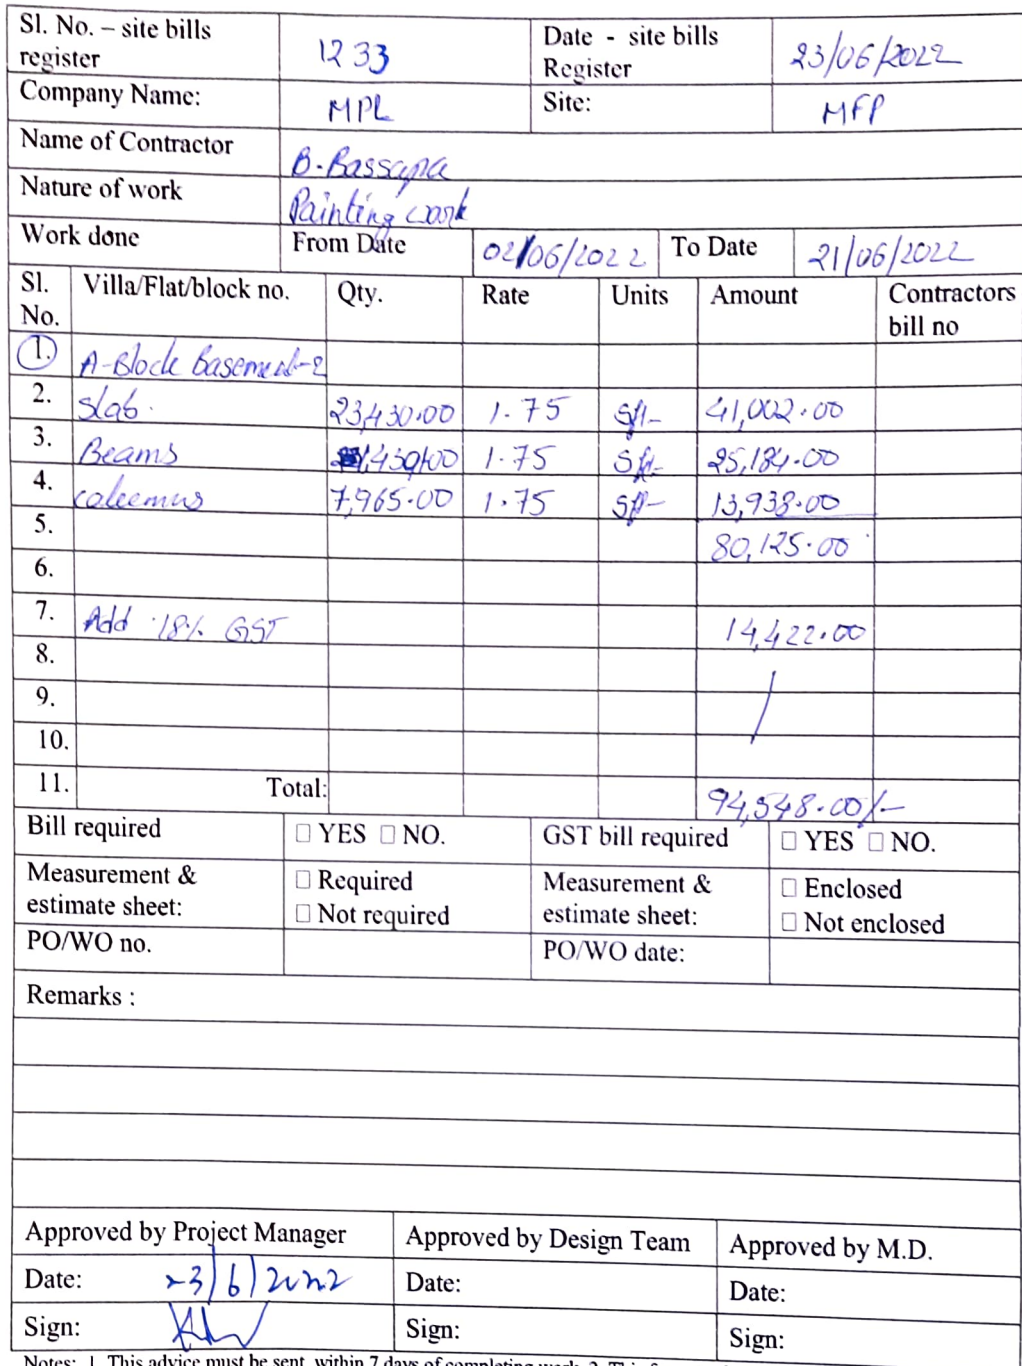 Sl. No. – site bills register 1233 Date - site bills Register 23/06/2022
Company Name: MPL Site: MFP
Name of Contractor B-Bassapa
Nature of work Painting work
Work done From Date 02/06/2022 To Date 21/06/2022
Sl. No. Villa/Flat/block no. Qty. Rate Units Amount Contractors bill no
1. A-Block Basement-2
2. Slab. 23,430.00 1.75 Sft- 41,002.00
3. Beams 1.75 Sft- 25,184.00
4. 7,965.00 1.75 Sft- 13,938.00
5. 80,125.00
6.
7. Add 18% GST 14,422.00
8.
9.
10.
11. Total: 94,548.00/-
Bill required □ YES □ NO. GST bill required □ YES □ NO.
Measurement & estimate sheet: □ Required □ Not required Measurement & estimate sheet: □ Enclosed □ Not enclosed
PO/WO no. PO/WO date:
Remarks :
Approved by Project Manager Approved by Design Team Approved by M.D.
Date: 23/6/2022 Date: Date:
Sign: Sign: Sign:
Notes: 1. This advice must be sent within 7 days of completing work. 2. This